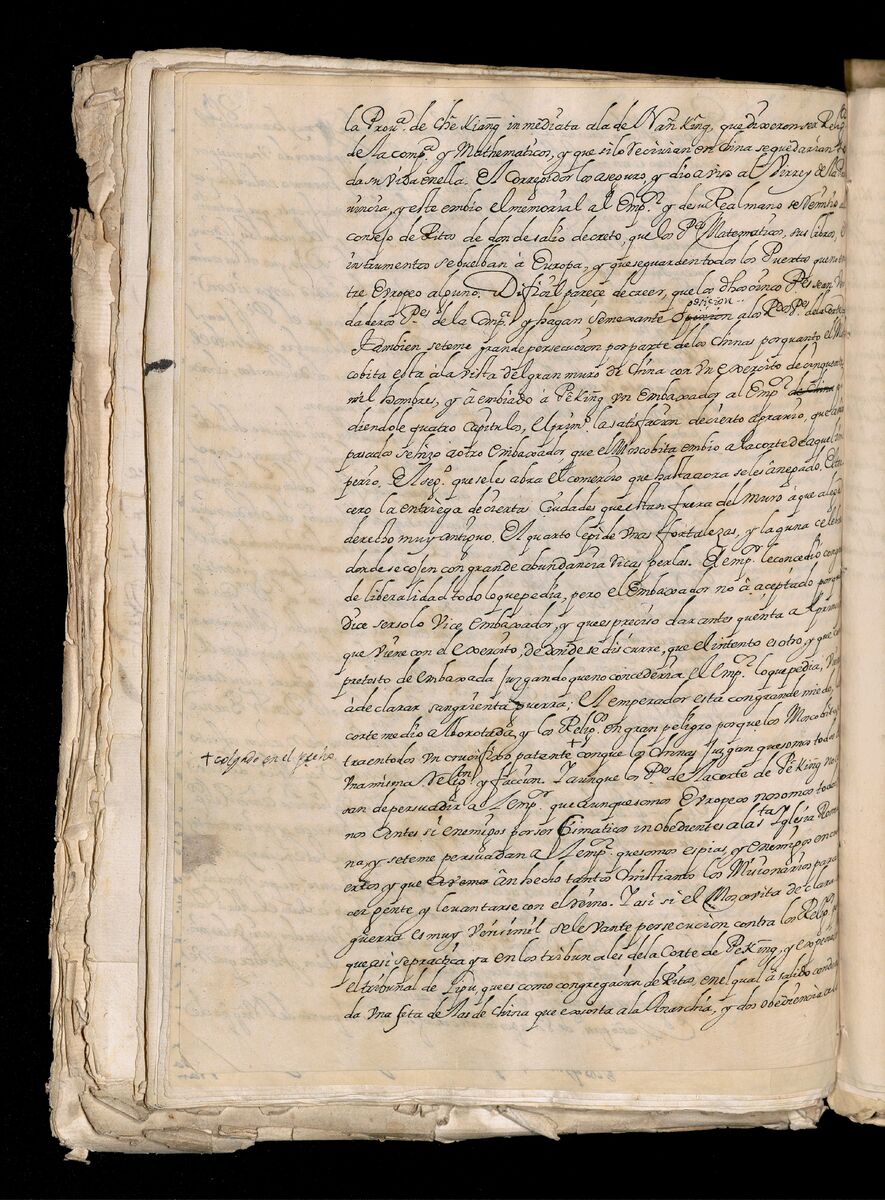 la Prou.ª de Chē Kiāng inmediata ala de Nañ King, que dixeron ser
de la comp.ª y Mathematicos, y que si lo recivian en China se quedarian
da su Vida en ella. El Corregidor los aseguro, y dio aviso al Virrey de la
uincia, y este embio el memorial al Emp.or y de su Real mano se remitio
consejo de Ritos de donde salio decreto, que los P.es Matematicos, sus libros,
instrumentos se buelban à Europa, y que se guarden todos los Puertos que no
tre Europeo alguno. Dificil parece de creer, que los dhos cinco P.es sean
daderos P.es de la Comp.ª y hagan semexante posicion a los R.dos P.es de la
Tambien se teme grande persecucion por parte de los Chinas por quanto el
cobita esta a la vista del gran muro de China con un Exercito de cinquenta
mil hombres, y à embiado a Pē King vn embaxador al Emp.or de China
diendole quatro Capitulos, El prim.o la satisfacion de cierto agravio, que
pasados se hizo a otro Embaxador, que el Moscobita embio a la corte de aquel
perio. El seg.o que se les abra el comercio que hasta aora se les à negado.
cero la entriega de ciertas Ciudades que estan fuera del Muro à que alega
derecho muy antiguo. El quarto le pide vnas fortalezas, y laguna
donde se cojen con grande abundancia ricas perlas. El emp.or le concedio con
de liberalidad todo lo que pedia, pero el Embaxador no à aceptado porque
dice ser solo Vice Embaxador, y que es preciso dar antes quenta a
que viene con el Exercito, de donde se discurre, que el intento es otro, y que
pretesto de embaxada juzgando que no concederia el Emp.or lo que pedia,
à declarar sangrienta guerra; El emperador esta con grande miedo,
corte medio alborotada, y los Relig.os en gran peligro porque los Moscobitas
traen todos vn crucifixo patente + conque los Chinas juzgan que somos todos
+ colgado en el pecho
vna misma Religion y faccion. Y aunque los P.es de la corte de Pē King
san de persuadir al Emp.or que aunque somos Europeos no somos todos
nos Entes si enemigos por ser Cismaticos inobedientes a la s.ta Yglesia
na, y se teme persuadan al Emp.or que somos espias, y enemigos
ertos y que àn hecho tantos Christianos los Misionarios para
cer gente y levantarse con el Reino. Y asi si el Moscovita declara
guerra es muy verisimil se levante persecucion contra los Relig.os
que asi se practica ya en los tribunales de la Corte de Pē King, y
el tribunal de Lipu, que es como congregacion de Ritos, en el qual à salido
da vna seta de las de China que exorta a la Anarchia, y dos obediencia